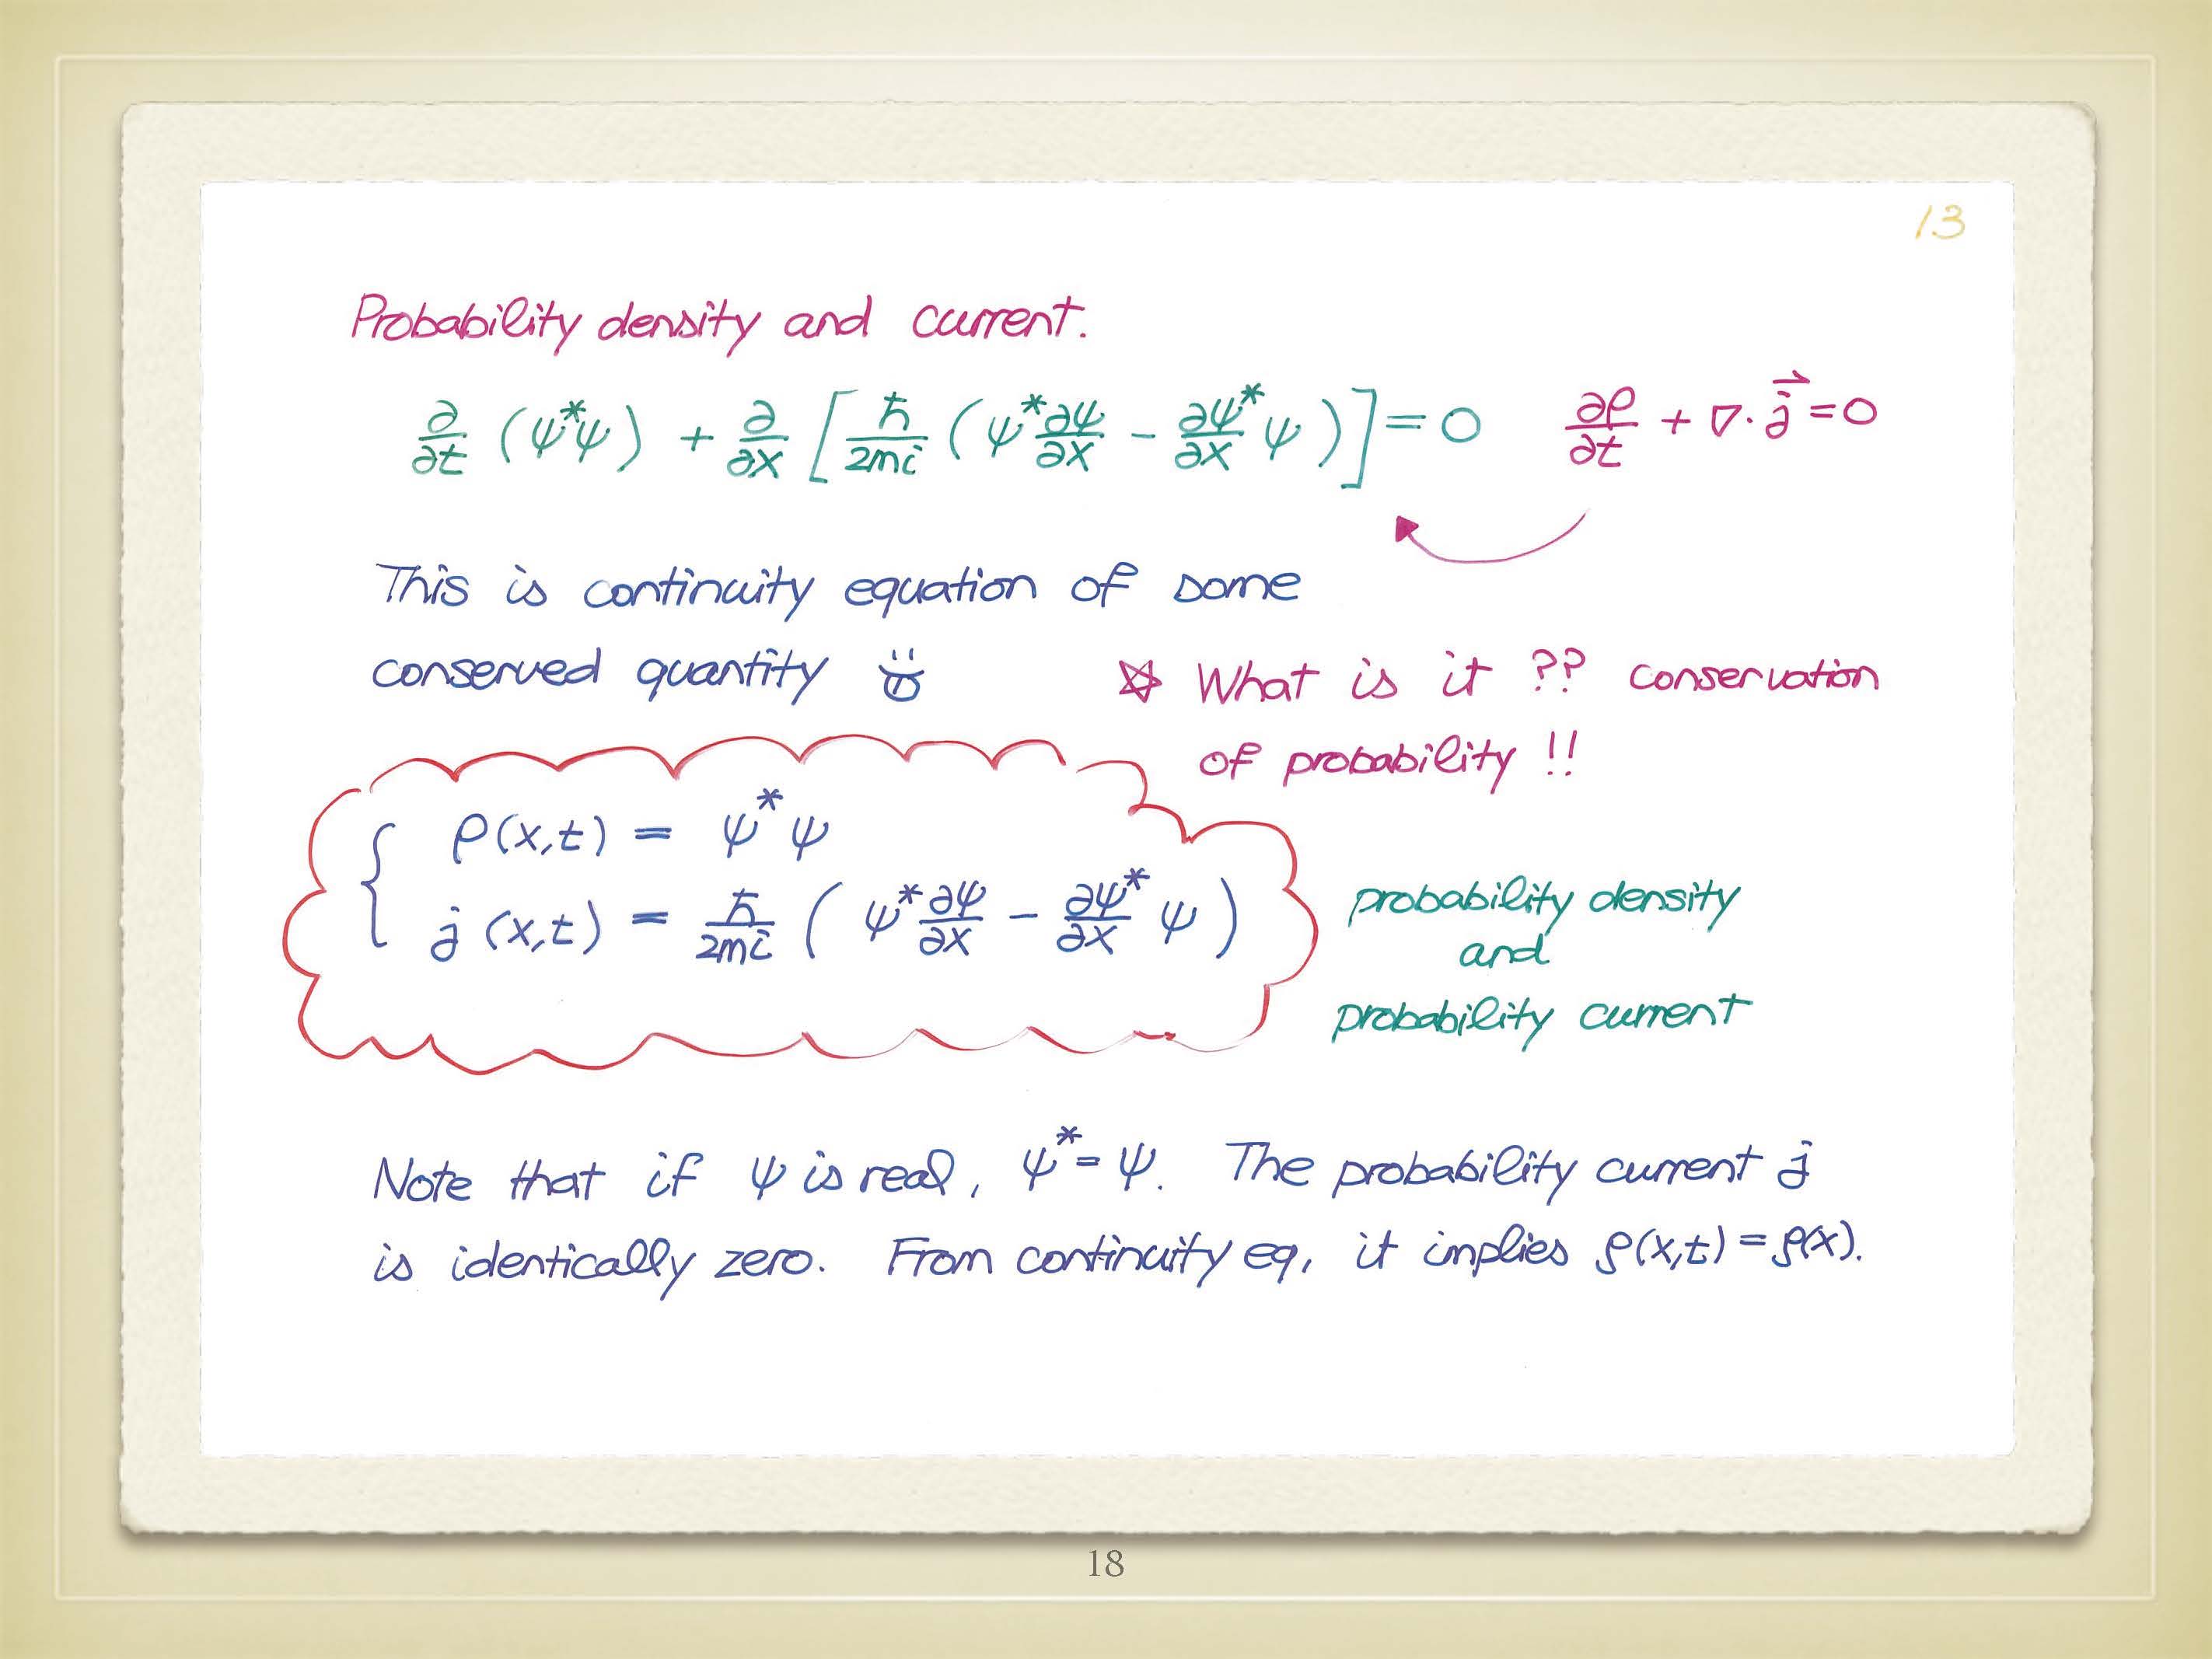 13
Probability density and current.
∂/∂t (ψ*ψ) + ∂/∂x [ℏ/2mi (ψ* ∂ψ/∂x - ∂ψ*/∂x ψ)] = 0   ∂ρ/∂t + ∇·j⃗ = 0
This is continuity equation of some
conserved quantity
☆ What is it ?? conservation
of probability !!
ρ(x,t) = ψ*ψ
j(x,t) = ℏ/2mi (ψ* ∂ψ/∂x - ∂ψ*/∂x ψ)
probability density
and
probability current
Note that if ψ is real, ψ* = ψ. The probability current j
is identically zero. From continuity eq, it implies ρ(x,t) = ρ(x).
18